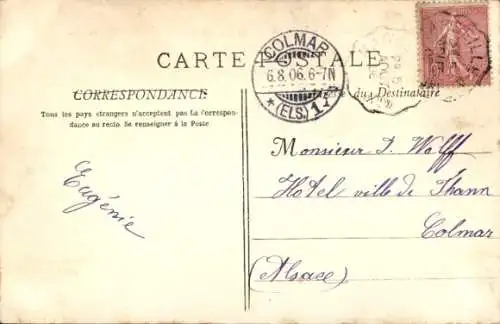 CARTE POSTALE
COLMAR
6.8.06.6-7N
* (ELS.) 1
CORRESPONDANCE
du Destinataire
Tous les pays étrangers n'acceptent pas La Correspon-
dance au recto. Se renseigner à la Poste
Eugénie
Monsieur J. Wolff
Hotel ville de Thann
Colmar
(Alsace)